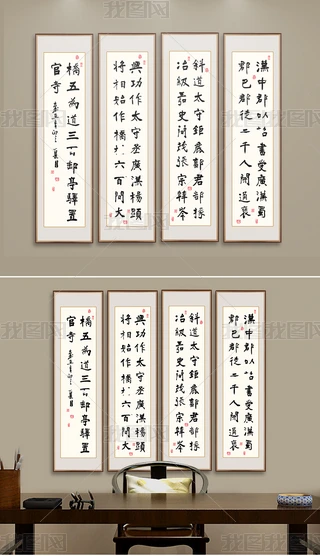 漢中郡以詔書受廣漢蜀
郡巴郡徒二千人開通褒
斜道太守鉅鹿鄐君部掾
冶級史荀茂張宗韓岑
興功作太守丞廣漢楊顯
將相始作橋六百間大
橋五為道三百郵亭驛置
官寺
漢中郡以詔書受廣漢蜀
郡巴郡徒二千人開通褒
斜道太守鉅鹿鄐君部掾
冶級史荀茂張宗韓岑
興功作太守丞廣漢楊顯
將相始作橋六百間大
橋五為道三百郵亭驛置
官寺